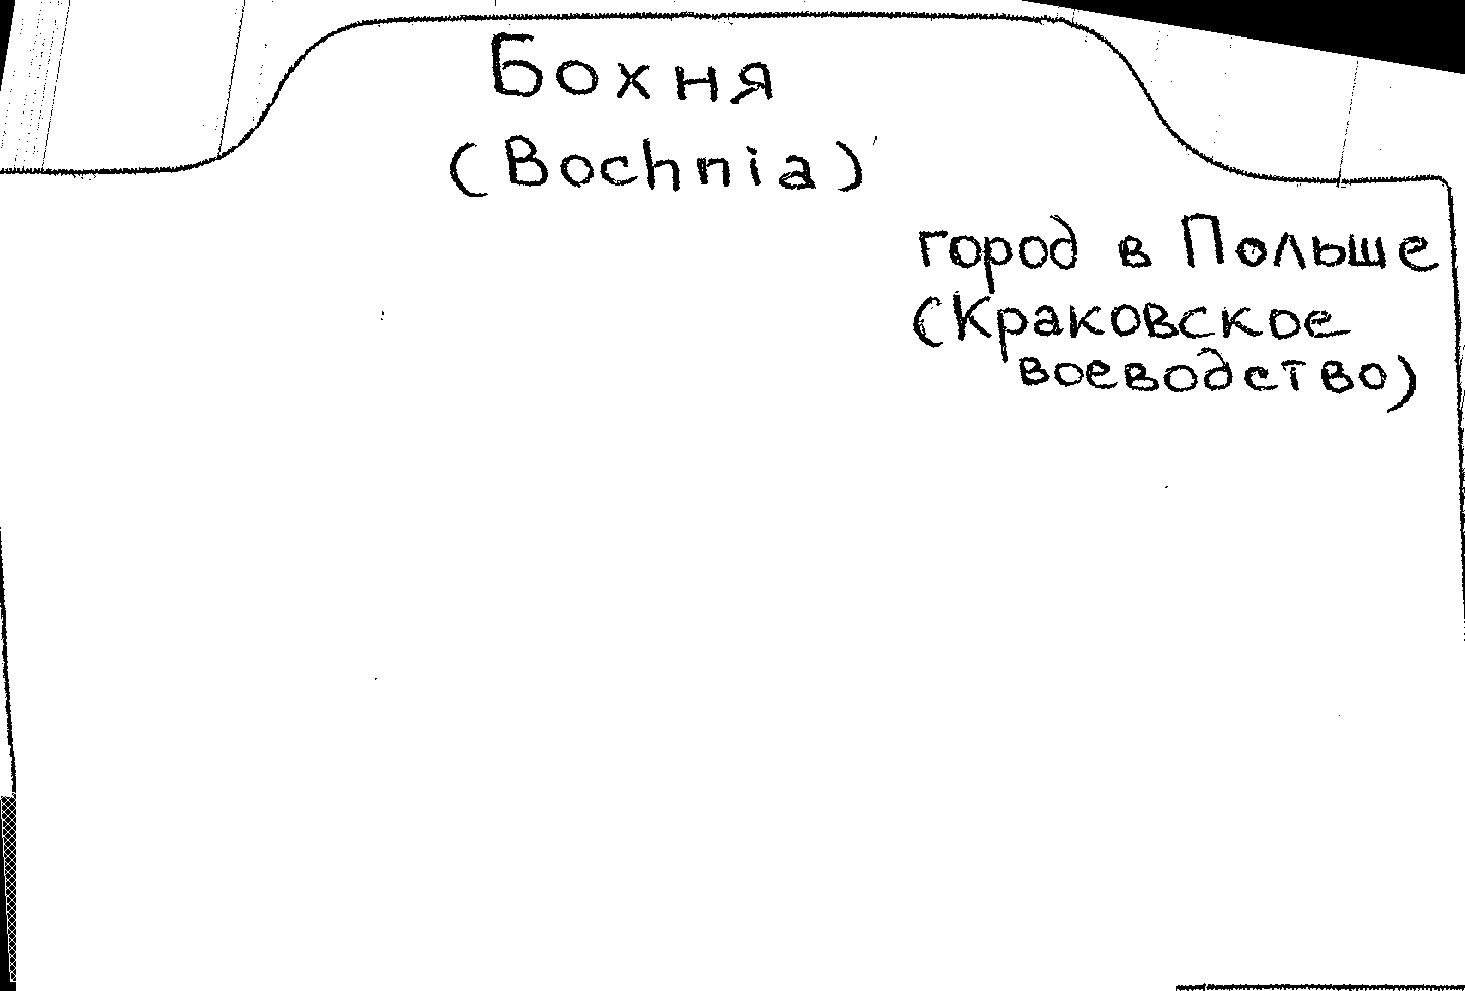 Бохня
(Bochnia)
город в Польше
(Краковское
воеводство)